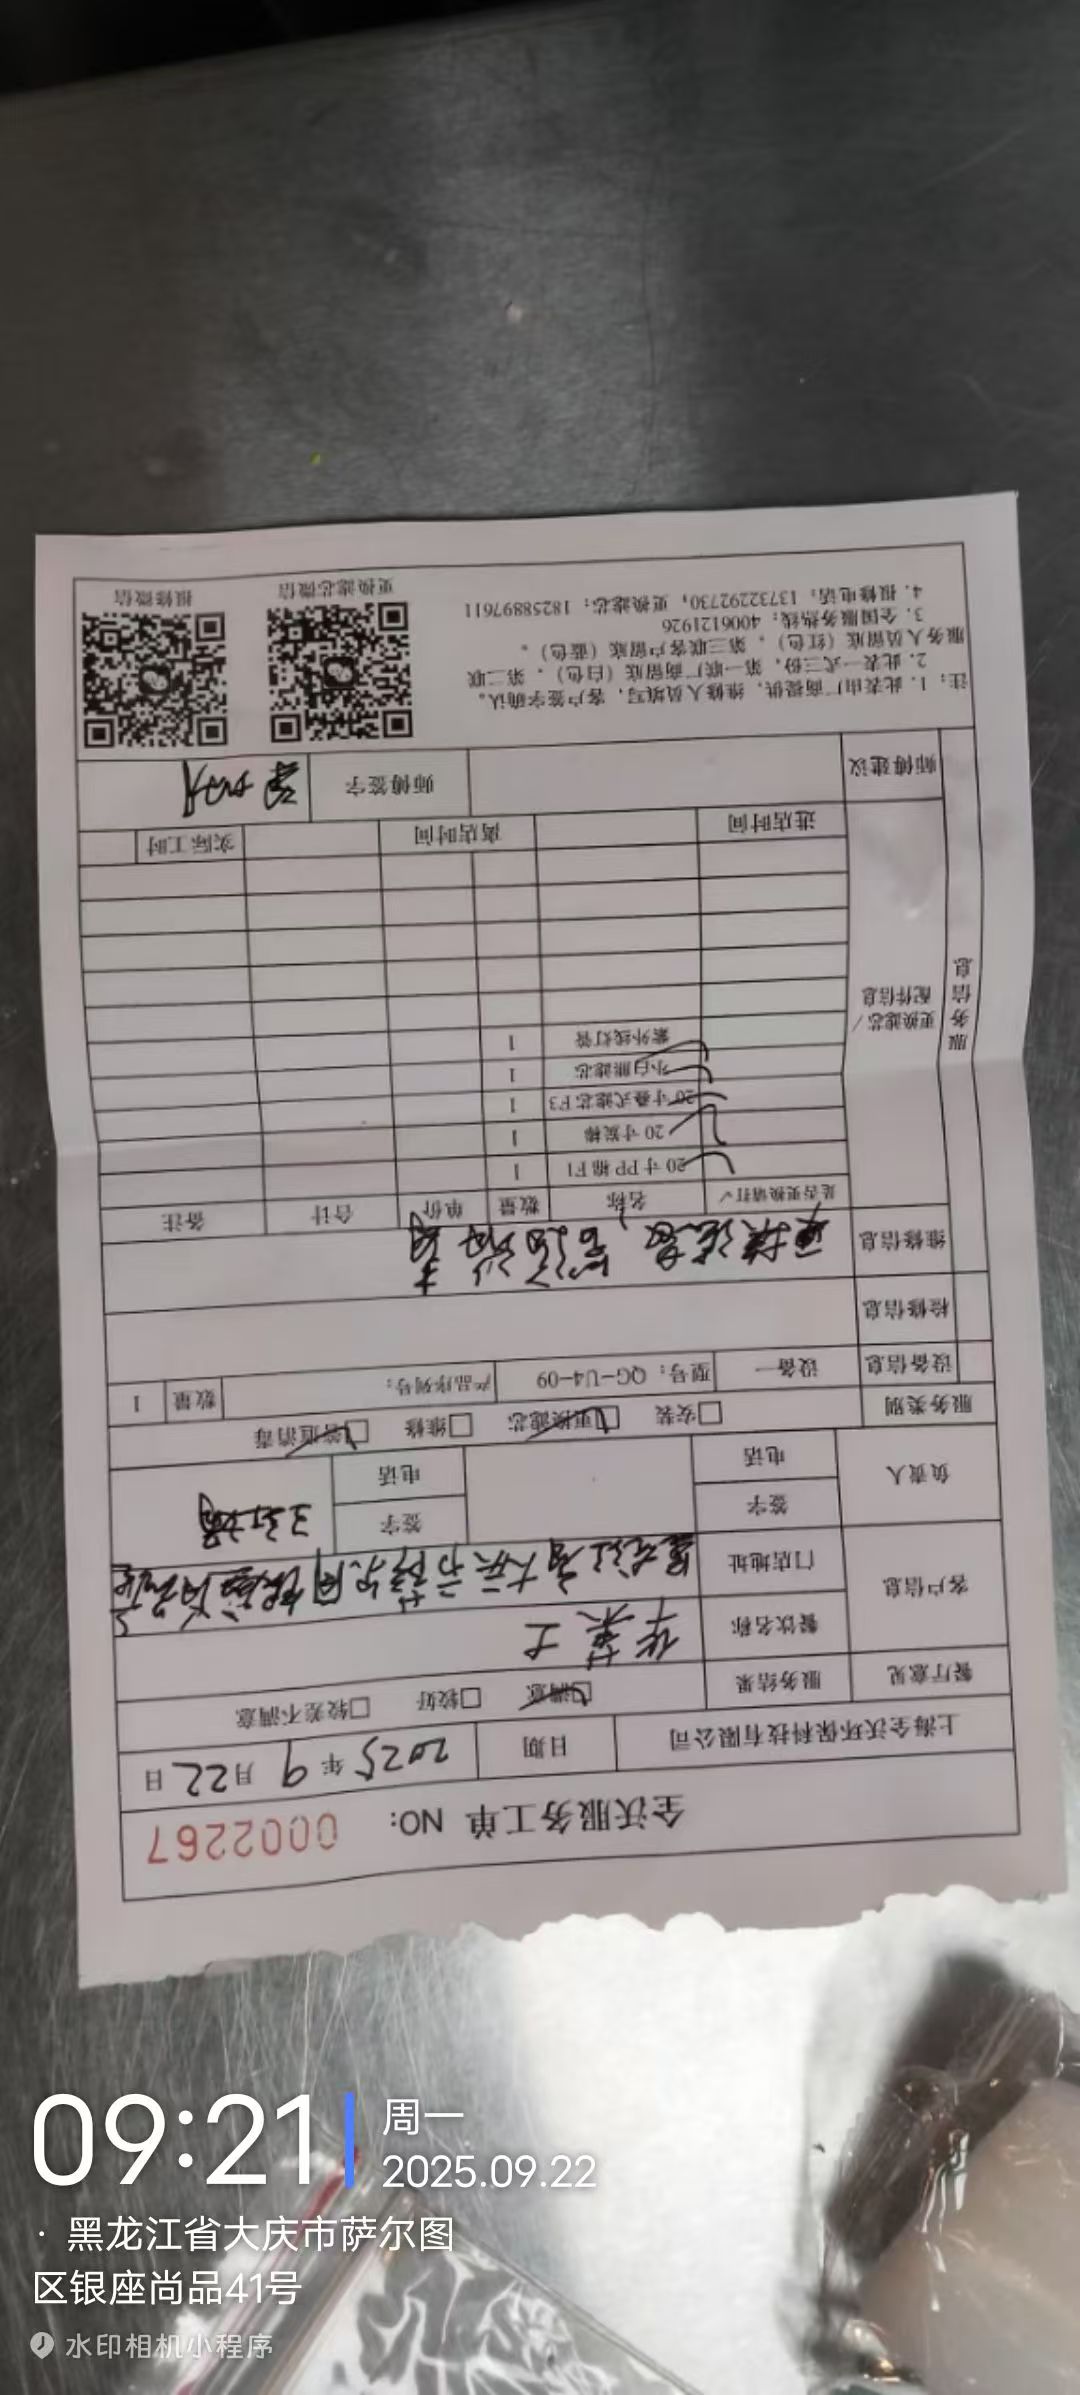 全沃服务工单 NO: 0002267
上海全沃环保科技有限公司 日期 2025年9月22日
餐厅意见 服务结果 □满意 □较好 □较差不满意
客户信息 餐饮名称 华莱士
门店地址 黑龙江省大庆市萨尔图
负责人 签字 签字
电话 电话
服务类别 □安装 □更换滤芯 □维修 □管道消毒
设备信息 设备一 型号：QG-U4-09 产品序列号： 数量 1
检修信息
服务信息
维修信息 更换滤芯
更换滤芯/配件信息
是否更换请打✓ 名称 数量 单价 合计 备注
✓ 20寸PP棉F1 1
✓ 20寸炭棒 1
✓ 20寸叠式滤芯F3 1
✓ 小白熊滤芯 1
✓ 紫外线灯管 1
进店时间 离店时间 实际工时
师傅建议 师傅签字
注：1．此表由厂商提供，维修人员填写，客户签字确认。
2．此表一式三份，第一联厂商留底（白色）、第二联
服务人员留底（红色）、第三联客户留底（蓝色）。
3．全国服务热线：4006121926
4．报修电话：13732292730；更换滤芯：18258897611
更换滤芯微信 报修微信
09:21
周一
2025.09.22
· 黑龙江省大庆市萨尔图
区银座尚品41号
水印相机小程序